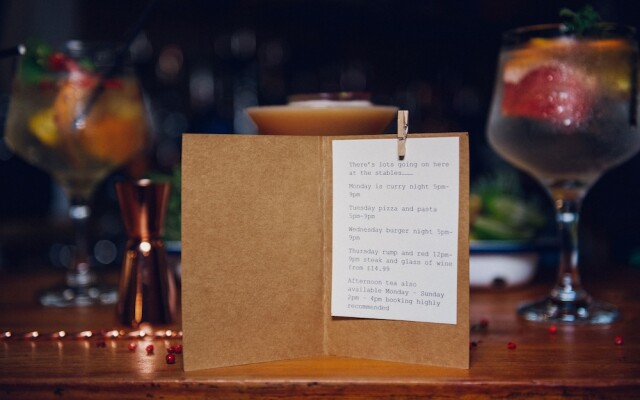 There's lots going on here
at the stables……
Monday is curry night 5pm-
9pm
Tuesday pizza and pasta
5pm-9pm
Wednesday burger night 5pm-
9pm
Thursday rump and red 12pm-
9pm steak and glass of wine
from £14.99
Afternoon tea also
available Monday - Sunday
2pm - 4pm booking highly
recommended